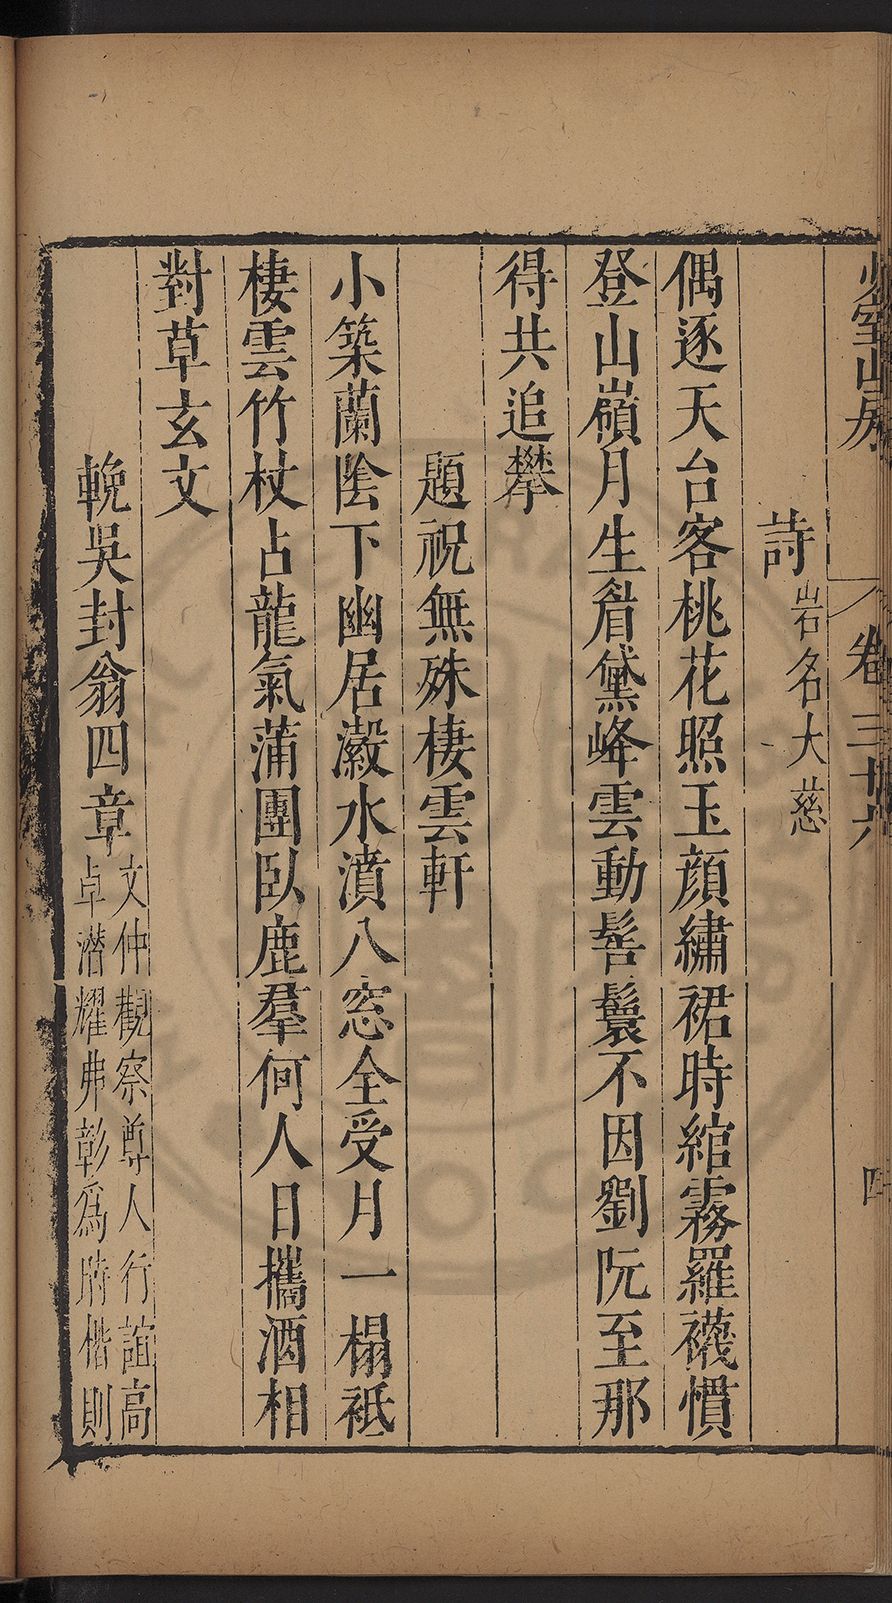 少室山房 卷三十六 四
詩岩名大慈
偶逐天台客桃花照玉顔繡裙時綰霧羅襪慣
登山嶺月生眉黛峰雲動髻鬟不因劉阮至那
得共追攀
題祝無殊棲雲軒
小築蘭陰下幽居瀫水濆八窓全受月一榻祗
棲雲竹杖占龍氣蒲團臥鹿羣何人日攜酒相
對草玄文
輓吳封翁四章文仲觀察尊人行誼高
卓潛耀弗彰爲時楷則